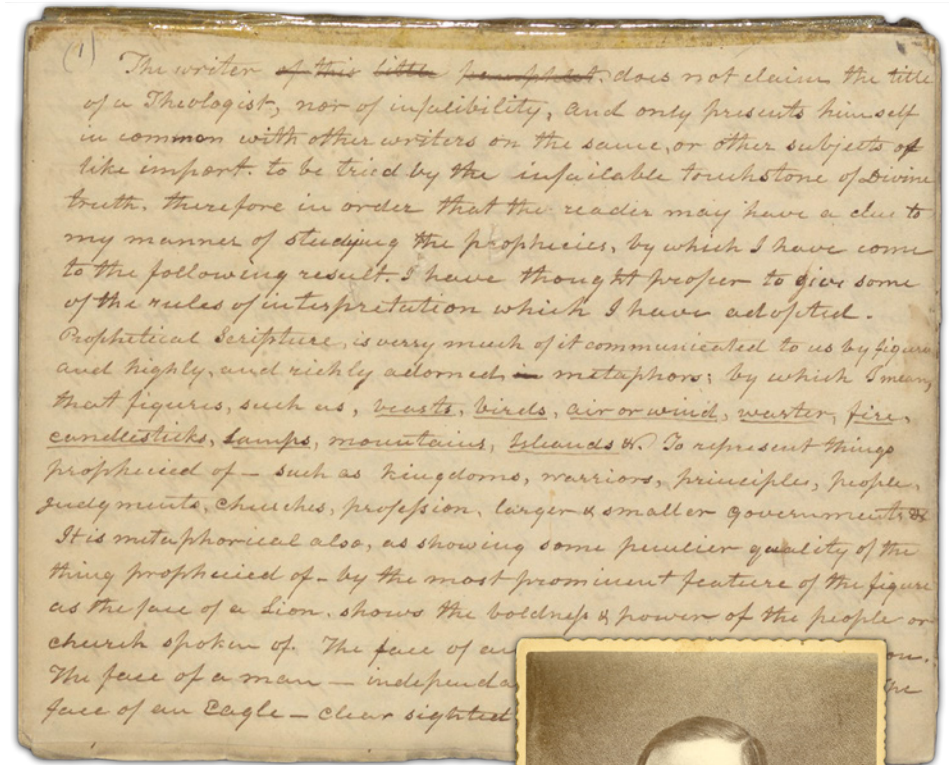 (1)
The writer of this little pamphlet. does not claim the title
of a Theologist, nor of infalibility, and only presents himself
in common with other writers on the same, or other subjects of
like import. to be tried by the infailable touchstone of Divine
truth. therefore in order that the reader may have a clue to
my manner of studying the prophecies, by which I have come
to the following result. I have thought proper to give some
of the rules of interpretation which I have adopted.
Prophetical Scripture, is verry much of it communicated to us by figure
and highly, and richly adorned in metaphors; by which I mean,
that figures, such as, beasts, birds, air or wind, warter, fire,
candlesticks, lamps, mountains, Islands &c. To represent things
prophecied of — such as kingdoms, warriors, principles, people,
judgments, churches, profession, larger & smaller governments &c
It is metaphorical also, as showing some peculier quality of the
thing prophecied of — by the most prominent feature of the figure
as the face of a Lion. shows the boldness & power of the people or
church spoken of. The face of an
The face of a man — independa
face of an Eagle — clear sighted